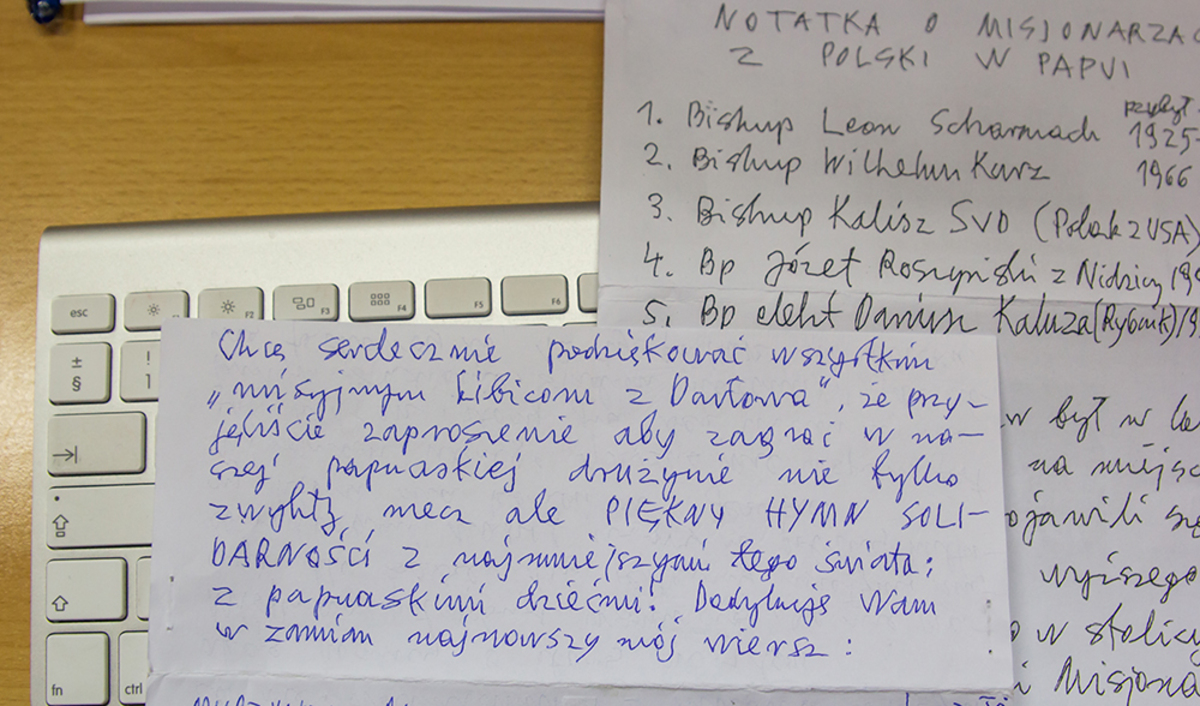 NOTATKA O MISJONARZAC
Z POLSKI W PAPUI
przybył
1. Biskup Leon Scharmach 1925-
2. Biskup Wilhelm Kurz 1966
3. Biskup Kalisz SVD (Polak z USA)
4. Bp Józef Roszyński z Nidzicy 19
5. Bp elekt Dariusz Kałuża (Rybnik) 19
w był w
na miejsc
ojawili się
wyższego
w stolicy
i Misjona
esc
F2
F3
F4
F5
F6
±
§
!
1
fn
ctrl
Chcę serdecznie podziękować wszystkim
„misyjnym kibicom z Darłowa", że przy-
jęliście zaproszenie aby zagrać w na-
szej papuaskiej drużynie nie tylko
zwykły mecz ale PIĘKNY HYMN SOLI-
DARNOŚCI z najmniejszymi tego świata;
z papuaskimi dziećmi! Dedykuję Wam
w zamian najnowszy mój wiersz: